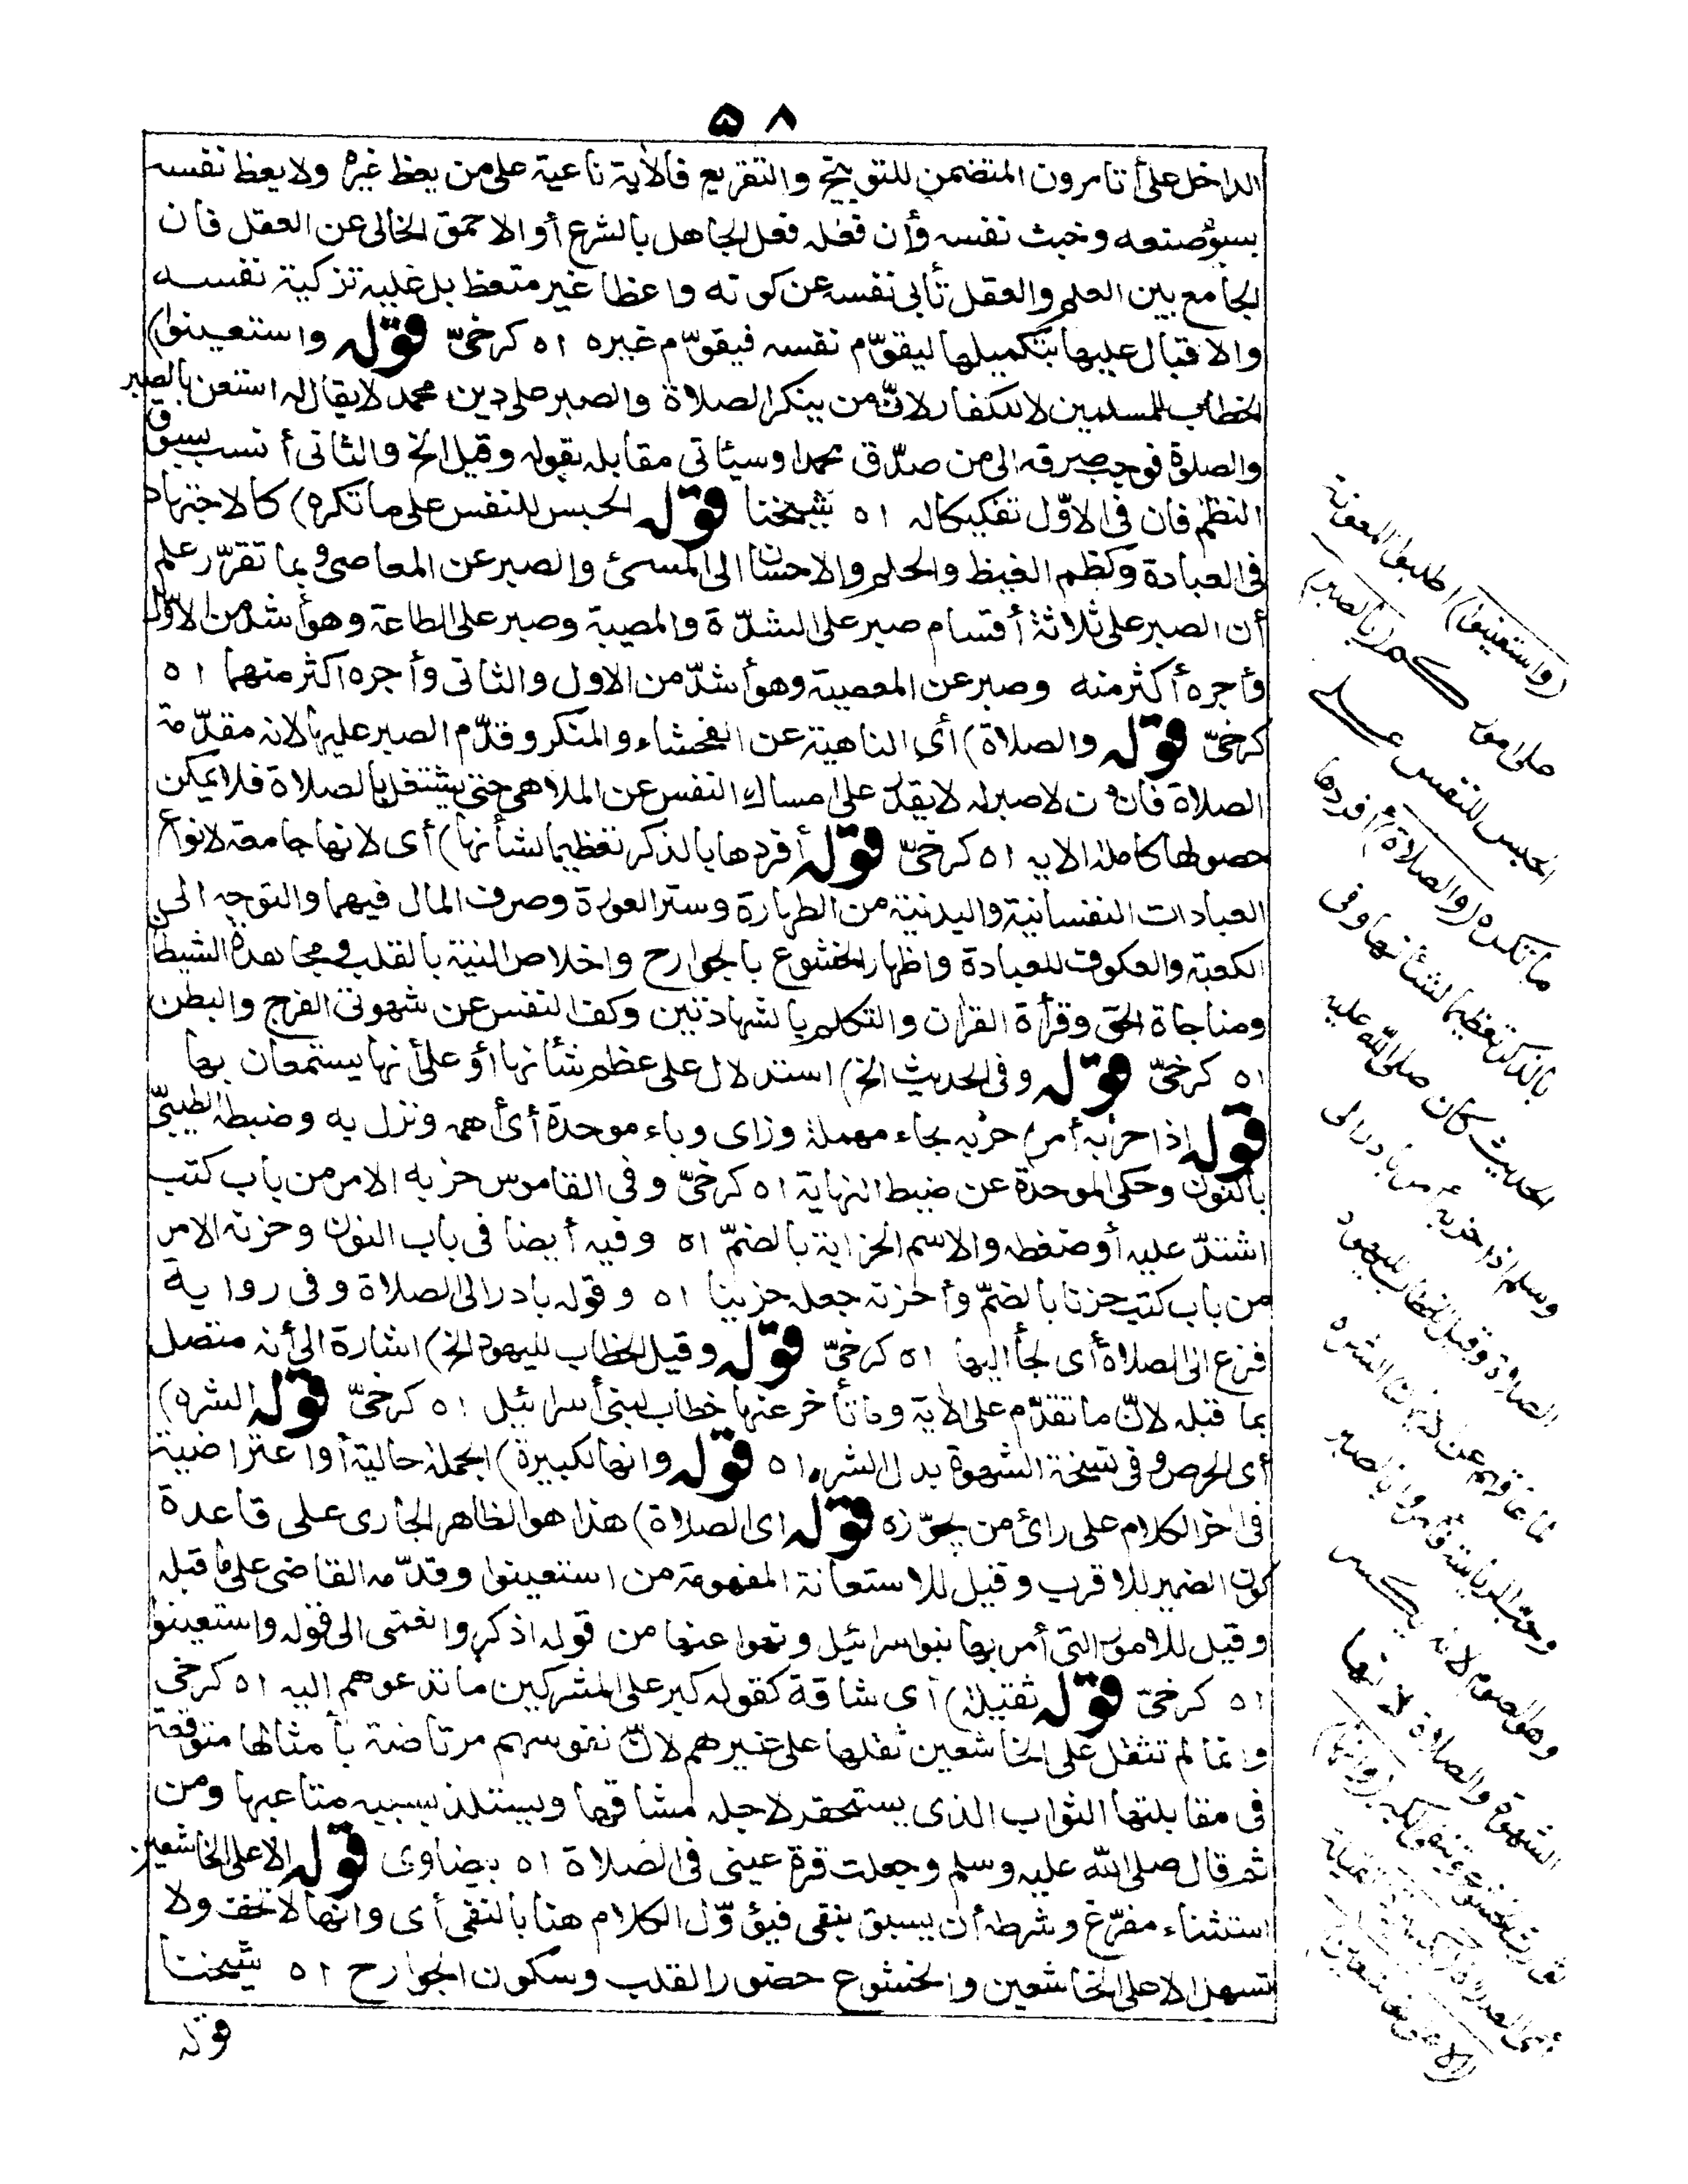 ٥٨
الداخل على أتامرون المتضمن للتوبيخ والتقريع فالآية ناعية على من يعظ غيره ولا يعظ نفسه
بسوء صنعه وخبث نفسه وأن فعله فعل الجاهل بالشرع أو الاحمق الخالى عن العقل فان
الجامع بين العلم والعقل تأبى نفسه عن كونه واعظا غير متعظ بل عليه تزكية نفسه
والاقبال عليها بتكميلها ليقوّم نفسه فيقوّم غيره اه كرخىّ قوله واستعينوا)
الخطاب للمسلمين لا للكفار لانّ من ينكر الصلاة والصبر على دين محمد لا يقال له استعن بالصبر
والصلوة فوجب صرفه الى من صدّق محمدا وسيأتى مقابله بقوله وقيل الخ والثانى أنسب بسوق
النظم فان فى الاوّل تفكيكا له اه شيخنا قوله الحبس للنفس على ما تكره) كالاجتهاد
فى العبادة وكظم الغيظ والحلم والاحسان الى المسىء والصبر عن المعاصى وبما تقرّر علم
أن الصبر على ثلاثة أقسام صبر على الشدّة والمصيبة وصبر على الطاعة وهو أشد من الاوّل
وأجره أكثر منه وصبر عن المعصية وهو أشدّ من الاول والثانى وأجره اكثر منهما اه
كرخىّ قوله والصلاة) أى الناهية عن الفحشاء والمنكر وقدّم الصبر عليها لانه مقدّمة
الصلاة فان من لا صبر له لا يقدر على امساك النفس عن الملاهى حتى يشتغل بالصلاة فلا يمكن
حصولها كاملة الا به اه كرخىّ قوله أفردها بالذكر تعظيما لشأنها) أى لانها جامعة لانواع
العبادات النفسانية والبدنية من الطهارة وستر العورة وصرف المال فيهما والتوجه الى
الكعبة والعكوف للعبادة واظهار الخشوع بالجوارح واخلاص النية بالقلب ومجاهدة الشيطان
ومناجاة الحق وقرأة القرآن والتكلم بالشهادتين وكف النفس عن شهوتى الفرج والبطن
اه كرخىّ قوله وفى الحديث الخ) استدلال على عظم شأنها أو على أنها يستعان بها
قوله اذا حزبه أمر) حزبه بحاء مهملة وزاى وباء موحدة أى أهمه ونزل به وضبطه الطيبىّ
بالنون وحكى الموحدة عن ضبط النهاية اه كرخىّ وفى القاموس حزبه الامر من باب كتب
اشتدّ عليه أو ضغطه والاسم الحزابة بالضمّ اه وفيه أيضا فى باب النون وحزنه الامر
من باب كتب حزنا بالضمّ وأحزنه جعله حزينا اه وقوله بادر الى الصلاة وفى رواية
فزع الى الصلاة أى لجأ اليها اه كرخىّ قوله وقيل الخطاب لليهود الخ) اشارة الى أنه متصل
بما قبله لانّ ما تقدّم على الآية وما تأخر عنها خطاب لبنى أسرائيل اه كرخىّ قوله الشره)
أى الحرص وفى نسخة الشهوة بدل الشره اه قوله وانها لكبيرة) الجملة حالية أو اعتراضية
فى اخر الكلام على رائ من يجوّزه قوله اى الصلاة) هذا هو الظاهر الجارى على قاعدة
كون الضمير للاقرب وقيل للاستعانة المفهومة من استعينوا وقدّمه القاضى على ما قبله
وقيل للامور التى أمر بها بنو اسرائيل ونهوا عنها من قوله اذكروا نعمتى الى قوله واستعينوا
اه كرخىّ قوله ثقيلة) أى شاقة كقوله كبر على المشركين ما تدعوهم إليه اه كرخى
وانما لم تثقل على الخاشعين ثقلها على غيرهم لانّ نفوسهم مرتاضة بأمثالها متوقعة
فى مقابلتها الثواب الذى يستحقر لاجله مشاقها ويستلذ بسببه متاعبها ومن
ثم قال صلى الله عليه وسلم وجعلت قرة عينى فى الصلاة اه بيضاوى قوله الا على الخاشعين
استثناء مفرّغ وشرطه أن يسبق بنفى فيؤوّل الكلام هنا بالنفى أى وانها لا تخف ولا
تسهل الا على الخاشعين والخشوع حضور القلب وسكون الجوارح اه شيخنا
قوله
(واستعينوا) اطلبوا المعونة
على اموركم (بالصبر)
الحبس للنفس على
ما تكره (والصلاة) أفردها
بالذكر تعظيما لشأنها وفى
الحديث كان صلى الله عليه
وسلم اذا حزبه أمر بادر الى
الصلاة وقيل الخطاب لليهود
لما عاقهم عن الايمان الشره
وحب الرياسة فأمروا بالصبر
وهو الصوم لانه يكسر
الشهوة والصلاة لانها
تورث الخشوع وتنفى الكبر (وانها)
أى الصلاة (لكبيرة) ثقيلة
(الا على الخاشعين)